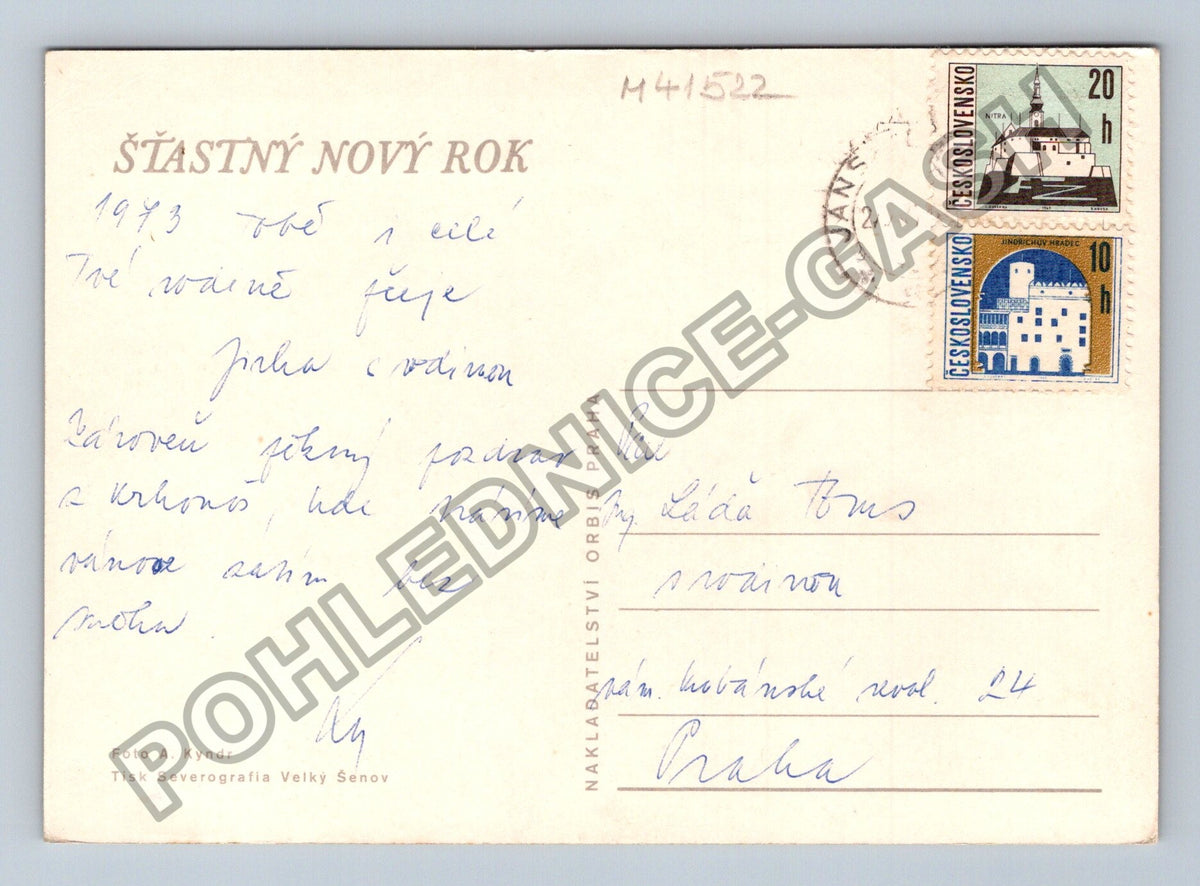 M 41522
ŠŤASTNÝ NOVÝ ROK
1973 Tobě i celé
Tvé rodině přeje
Jirka s rodinou
Zároveň pěkný pozdrav
z Krkonoš, kde trávíme
vánoce zatím bez
sněhu.
Foto A. Kyndr
Tisk Severografia Velký Šenov
NAKLADATELSTVÍ ORBIS PRAHA
JÁNSK
ČESKOSLOVENSKO
NITRA
20 h
ČESKOSLOVENSKO
JINDŘICHŮV HRADEC
10 h
Láďa
s rodinou
nám. Kubánské revol. 24
Praha
POHLEDNICE-GASH